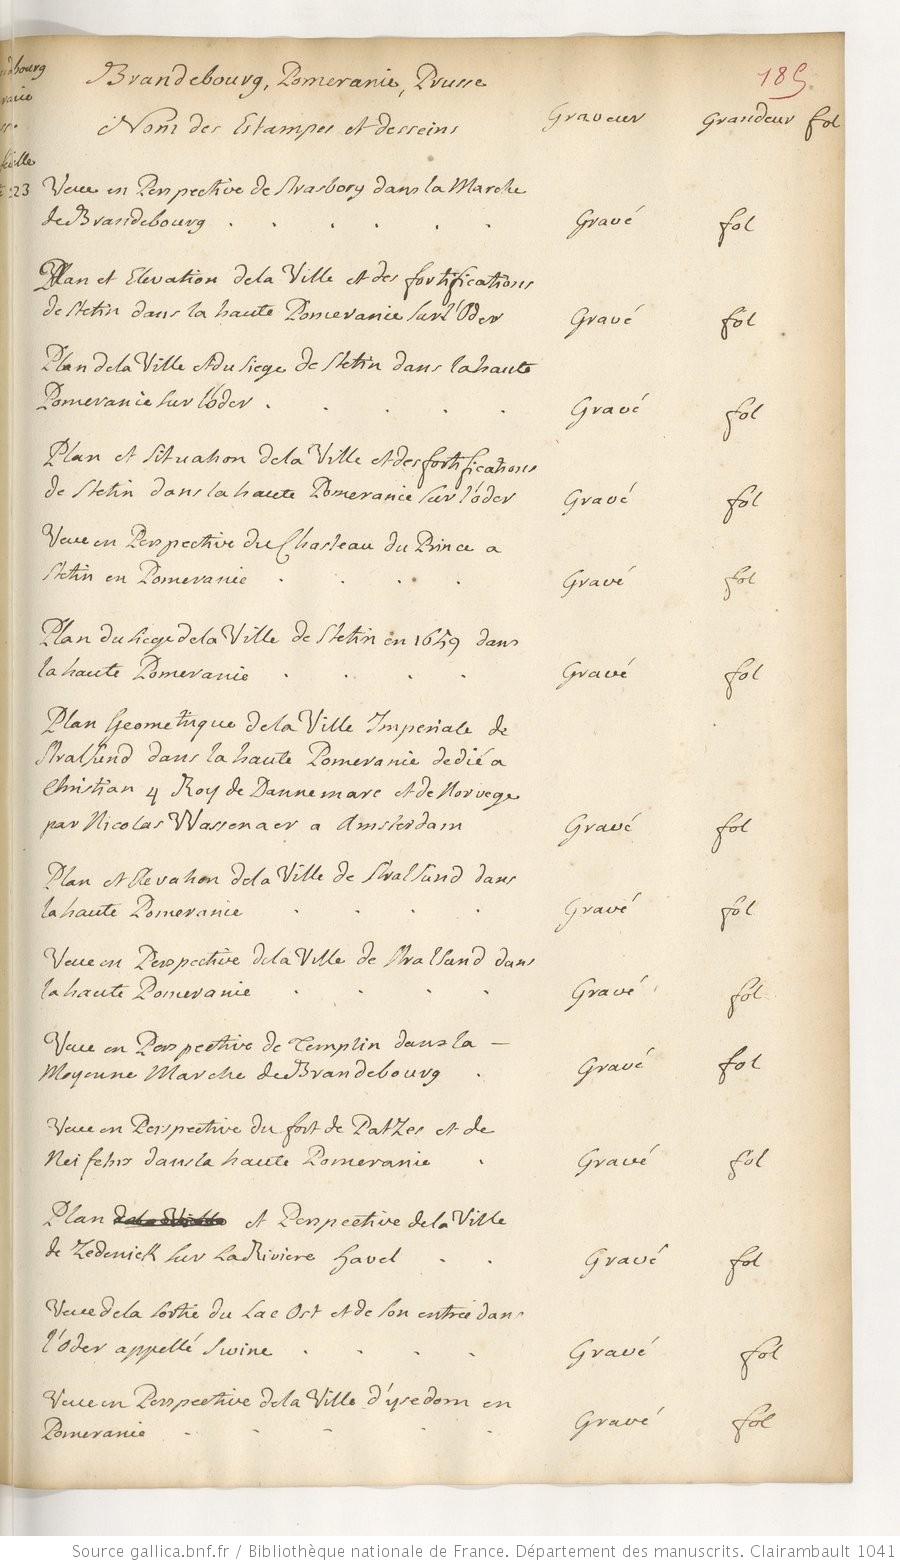 Brandebourg, Pomeranie, Prusse
185
Nom des Estampes et desseins Graveur Grandeur fol
Veue en Perspective de strasborg dans la Marche
de Brandebourg . . . . . . Gravé fol
Plan et Elevation dela Ville et des fortifications
de stetin dans la haute Pomeranie sur l'Oder Gravé fol
Plan dela Ville et du siege de stetin dans la haute
Pomeranie sur l'oder . . . . . Gravé fol
Plan et situation dela Ville et des fortifications
de stetin dans la haute Pomeranie sur l'oder Gravé fol
Veue en Perspective du Chasteau du Prince a
stetin en Pomeranie . . . . Gravé fol
Plan du siege dela Ville de stetin en 1659 dans
la haute Pomeranie . . . . Gravé fol
Plan Geometrique dela Ville Imperiale de
stralsund dans la haute Pomeranie dedié a
Christian 4 Roy de Dannemarc et de Norvege
par Nicolas Wassenaer a Amsterdam Gravé fol
Plan et Elevation dela Ville de stralsund dans
la haute Pomeranie . . . . Gravé fol
Veue en Perspective dela Ville de stralsund dans
la haute Pomeranie . . . . Gravé fol
Veue en Perspective de Templin dans la –
Moyenne Marche de Brandebourg . Gravé fol
Veue en Perspective du fort de Patzes et de
dans la haute Pomeranie . Gravé fol
Plan et Perspective dela Ville
de Zedenick sur la Riviere havel . . Gravé fol
Veue dela sortie du Lac Ost et de son entrée dans
l'Oder appellé swine . . . . Gravé fol
Veue en Perspective dela Ville d'ysedom en
Pomeranie . . . . . Gravé fol
Source gallica.bnf.fr / Bibliothèque nationale de France. Département des manuscrits. Clairambault 1041